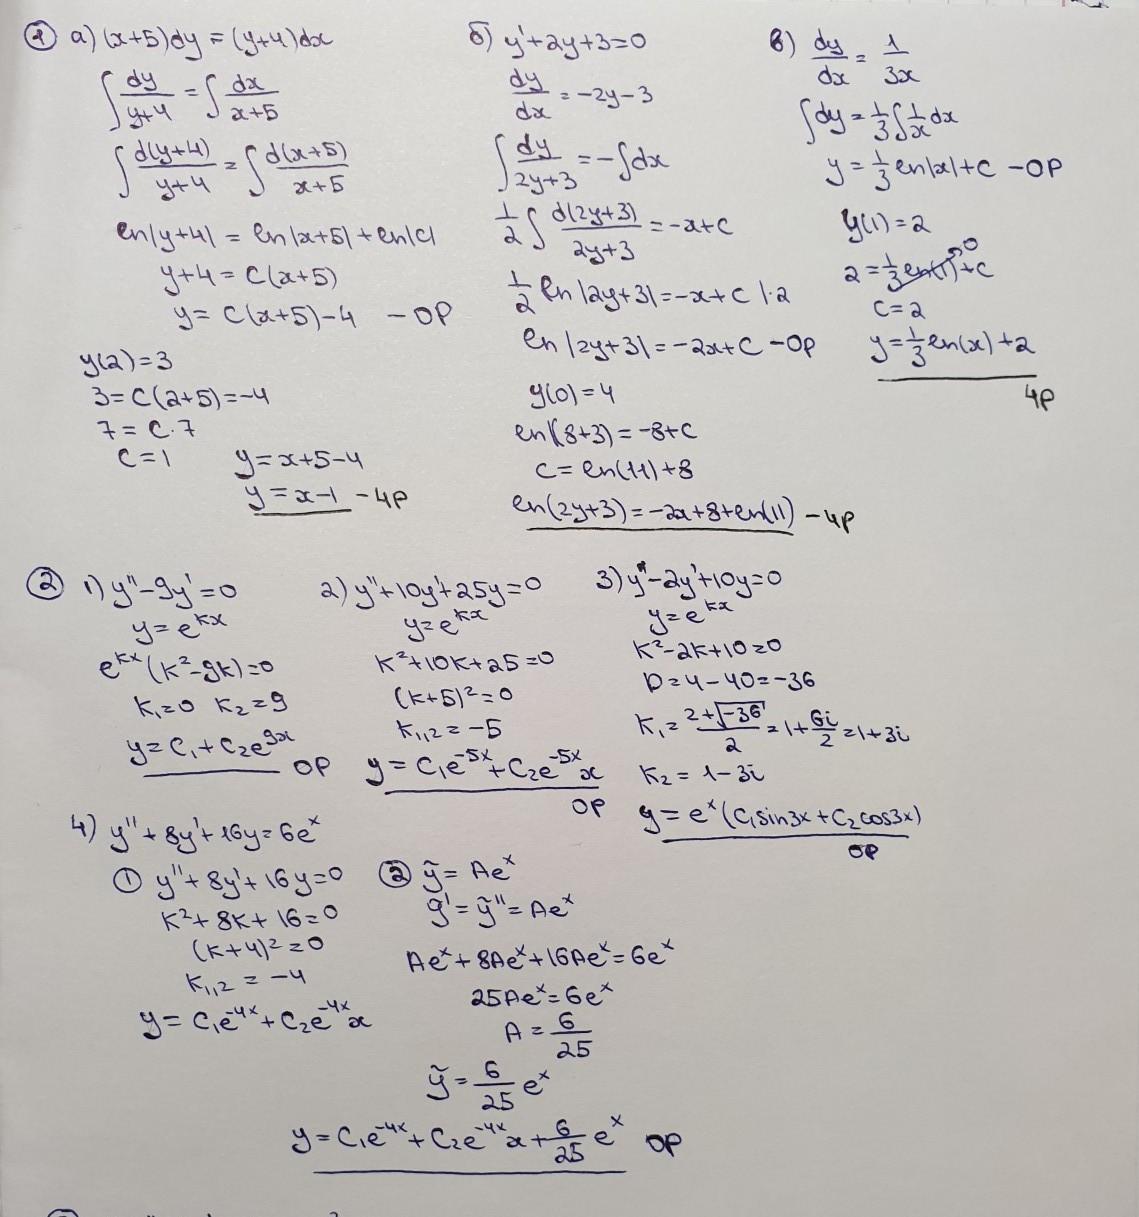 ① а) (x+5)dy = (y+4)dx
∫ dy/(y+4) = ∫ dx/(x+5)
∫ d(y+4)/(y+4) = ∫ d(x+5)/(x+5)
ln|y+4| = ln|x+5| + ln|C|
y+4 = C(x+5)
y = C(x+5)-4 - ОР
y(2)=3
3 = C(2+5)=-4
7 = C·7
C=1
y=x+5-4
y=x-1 - ЧР
б) y'+2y+3=0
dy/dx = -2y-3
∫ dy/(2y+3) = -∫dx
1/2 ∫ d(2y+3)/(2y+3) = -x+C
1/2 ln|2y+3| = -x+C |·2
ln|2y+3| = -2x+C - ОР
y(0)=4
ln(8+3) = -8+C
C = ln(11)+8
ln(2y+3) = -2x+8+ln(11) - ЧР
в) dy/dx = 1/3x
∫dy = 1/3 ∫ 1/x dx
y = 1/3 ln|x|+C - ОР
y(1)=2
2 = 1/3 ln(1)→0 + C
C=2
y = 1/3 ln(x)+2
ЧР
② 1) y''-9y'=0
y=e^kx
e^kx (k²-9k)=0
k₁=0 k₂=9
y=C₁+C₂e^9x
ОР
2) y''+10y'+25y=0
y=e^kx
k²+10k+25=0
(k+5)²=0
k₁,₂ = -5
y=C₁e^-5x + C₂e^-5x x
ОР
3) y''-2y'+10y=0
y=e^kx
k²-2k+10=0
D=4-40=-36
k₁ = (2+√-36)/2 = 1+6i/2 = 1+3i
k₂ = 1-3i
y = e^x (C₁sin3x+C₂cos3x)
ОР
4) y''+8y'+16y=6e^x
① y''+8y'+16y=0
k²+8k+16=0
(k+4)²=0
k₁,₂ = -4
y = C₁e^-4x + C₂e^-4x x
② ỹ = Ae^x
ỹ' = ỹ'' = Ae^x
Ae^x + 8Ae^x + 16Ae^x = 6e^x
25Ae^x = 6e^x
A = 6/25
ỹ = 6/25 e^x
y = C₁e^-4x + C₂e^-4x x + 6/25 e^x ОР